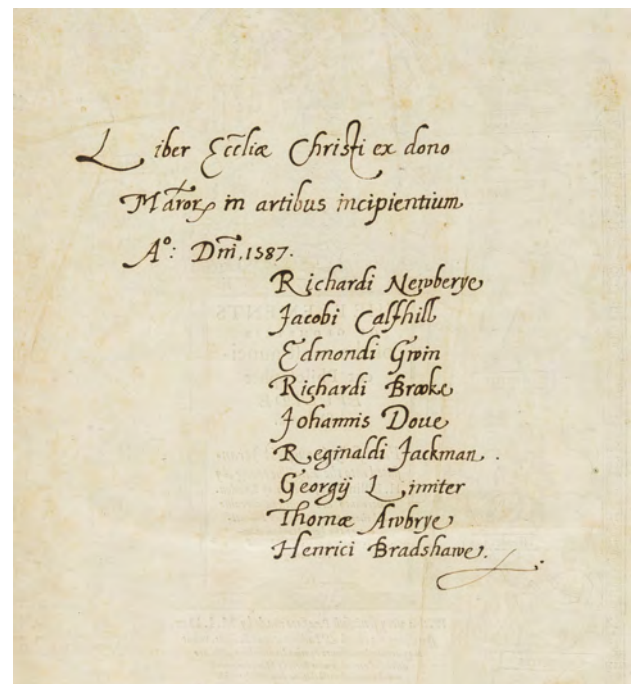 Liber Eccliæ Christi ex dono
Mãror in artibus incipientium
Aº: Dñi, 1587.
Richardi Newberye
Jacobi Calfhill
Edmondi Gwin
Richardi Brooke
Johannis Doue
Reginaldi Jackman.
Georgij Limiter
Thomæ Awbrye
Henrici Bradshawe.